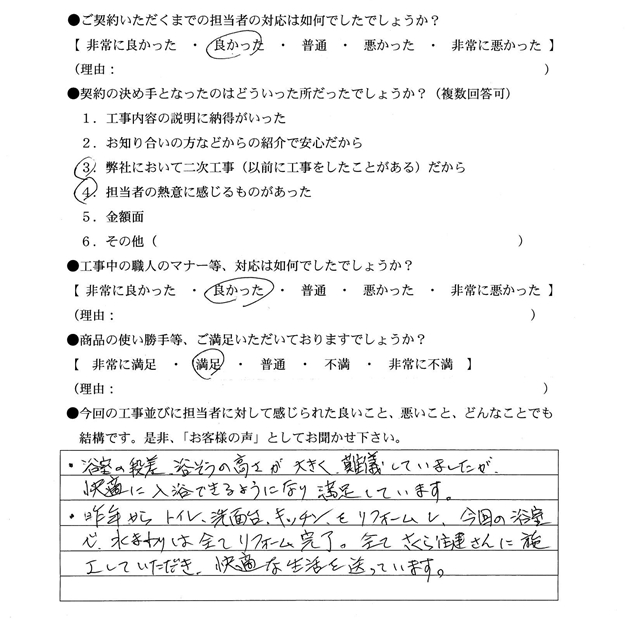 ●ご契約いただくまでの担当者の対応は如何でしたでしょうか？
【 非常に良かった ・ 良かった ・ 普通 ・ 悪かった ・ 非常に悪かった 】
（理由：　）
●契約の決め手となったのはどういった所だったでしょうか？（複数回答可）
１．工事内容の説明に納得がいった
２．お知り合いの方などからの紹介で安心だから
３．弊社において二次工事（以前に工事をしたことがある）だから
４．担当者の熱意に感じるものがあった
５．金額面
６．その他（　）
●工事中の職人のマナー等、対応は如何でしたでしょうか？
【 非常に良かった ・ 良かった ・ 普通 ・ 悪かった ・ 非常に悪かった 】
（理由：　）
●商品の使い勝手等、ご満足いただいておりますでしょうか？
【 非常に満足 ・ 満足 ・ 普通 ・ 不満 ・ 非常に不満 】
（理由：　）
●今回の工事並びに担当者に対して感じられた良いこと、悪いこと、どんなことでも
結構です。是非、「お客様の声」としてお聞かせ下さい。
・浴室の段差、浴そうの高さが 大きく、難義していましたが、
快適に入浴できるようになり 満足しています。
・昨年から トイレ、洗面台、キッチン、をリフォームし、今回の浴室
で、水まわりは全てリフォーム完了。全て さくら住建さんに施
工していただき、快適な生活を送っています。